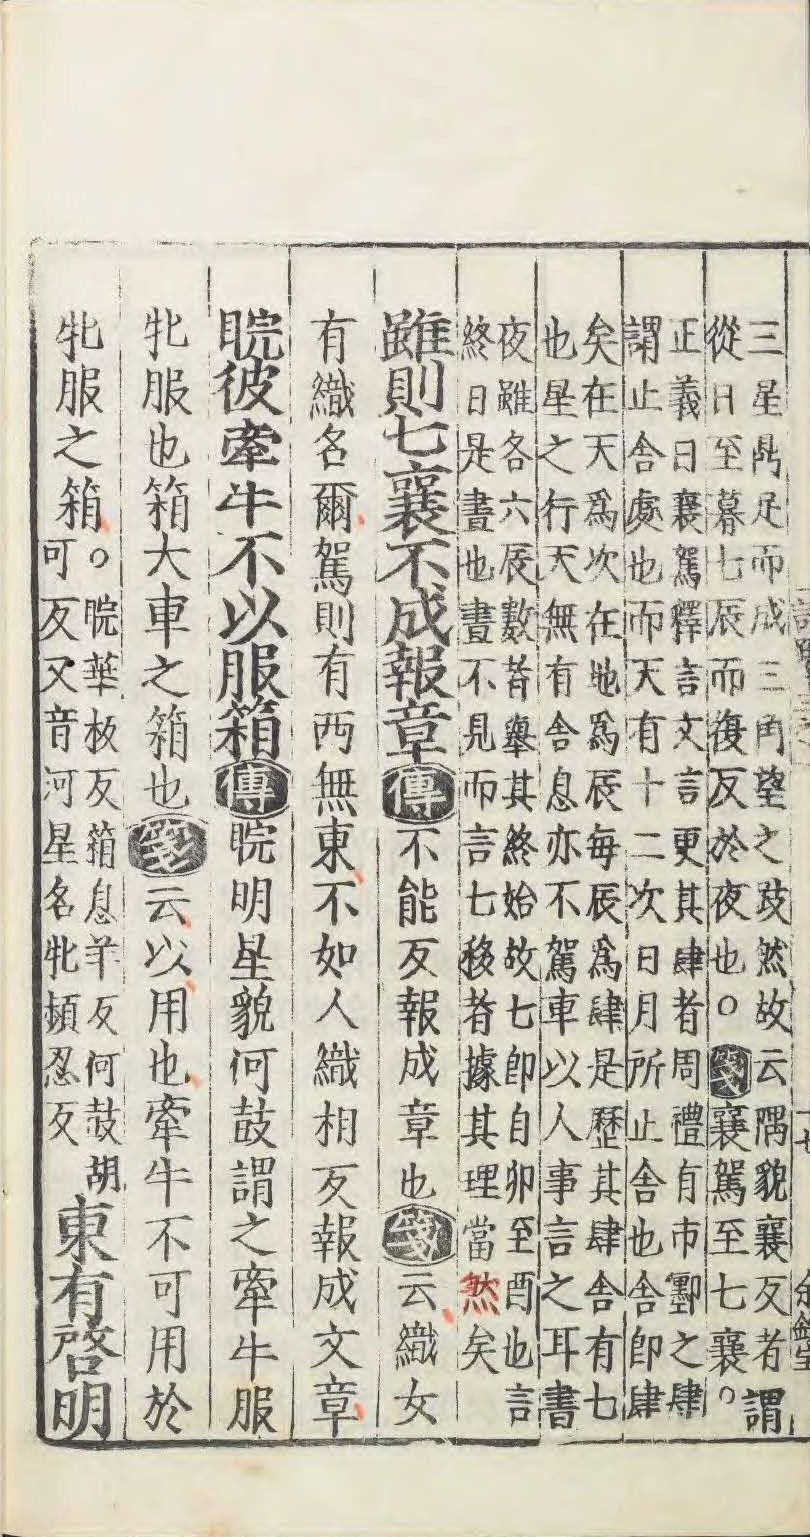 三星鼎足而成三角望之跂然故云隅貌襄反者謂
從旦至暮七辰而復反於夜也○箋襄駕至七襄○
正義曰襄駕釋言文言更其肆者周禮有市鄽之肆
謂止舍處也而天有十二次日月所止舍也舍即肆
矣在天爲次在地爲辰每辰爲肆是歷其肆舍有七
也星之行天無有舍息亦不駕車以人事言之耳書
夜雖各六辰數者舉其終始故七即自卯至酉也言
終日是晝也晝不見而言七移者據其理當然矣
雖則七襄不成報章傳不能反報成章也箋云織女
有織名爾駕則有西無東不如人織相反報成文章
睆彼牽牛不以服箱傳睆明星貌何鼓謂之牽牛服
牝服也箱大車之箱也箋云以用也牽牛不可用於
牝服之箱○睆華板反箱息羊反何鼓胡
可反又音河星名牝頻忍反
東有啓明